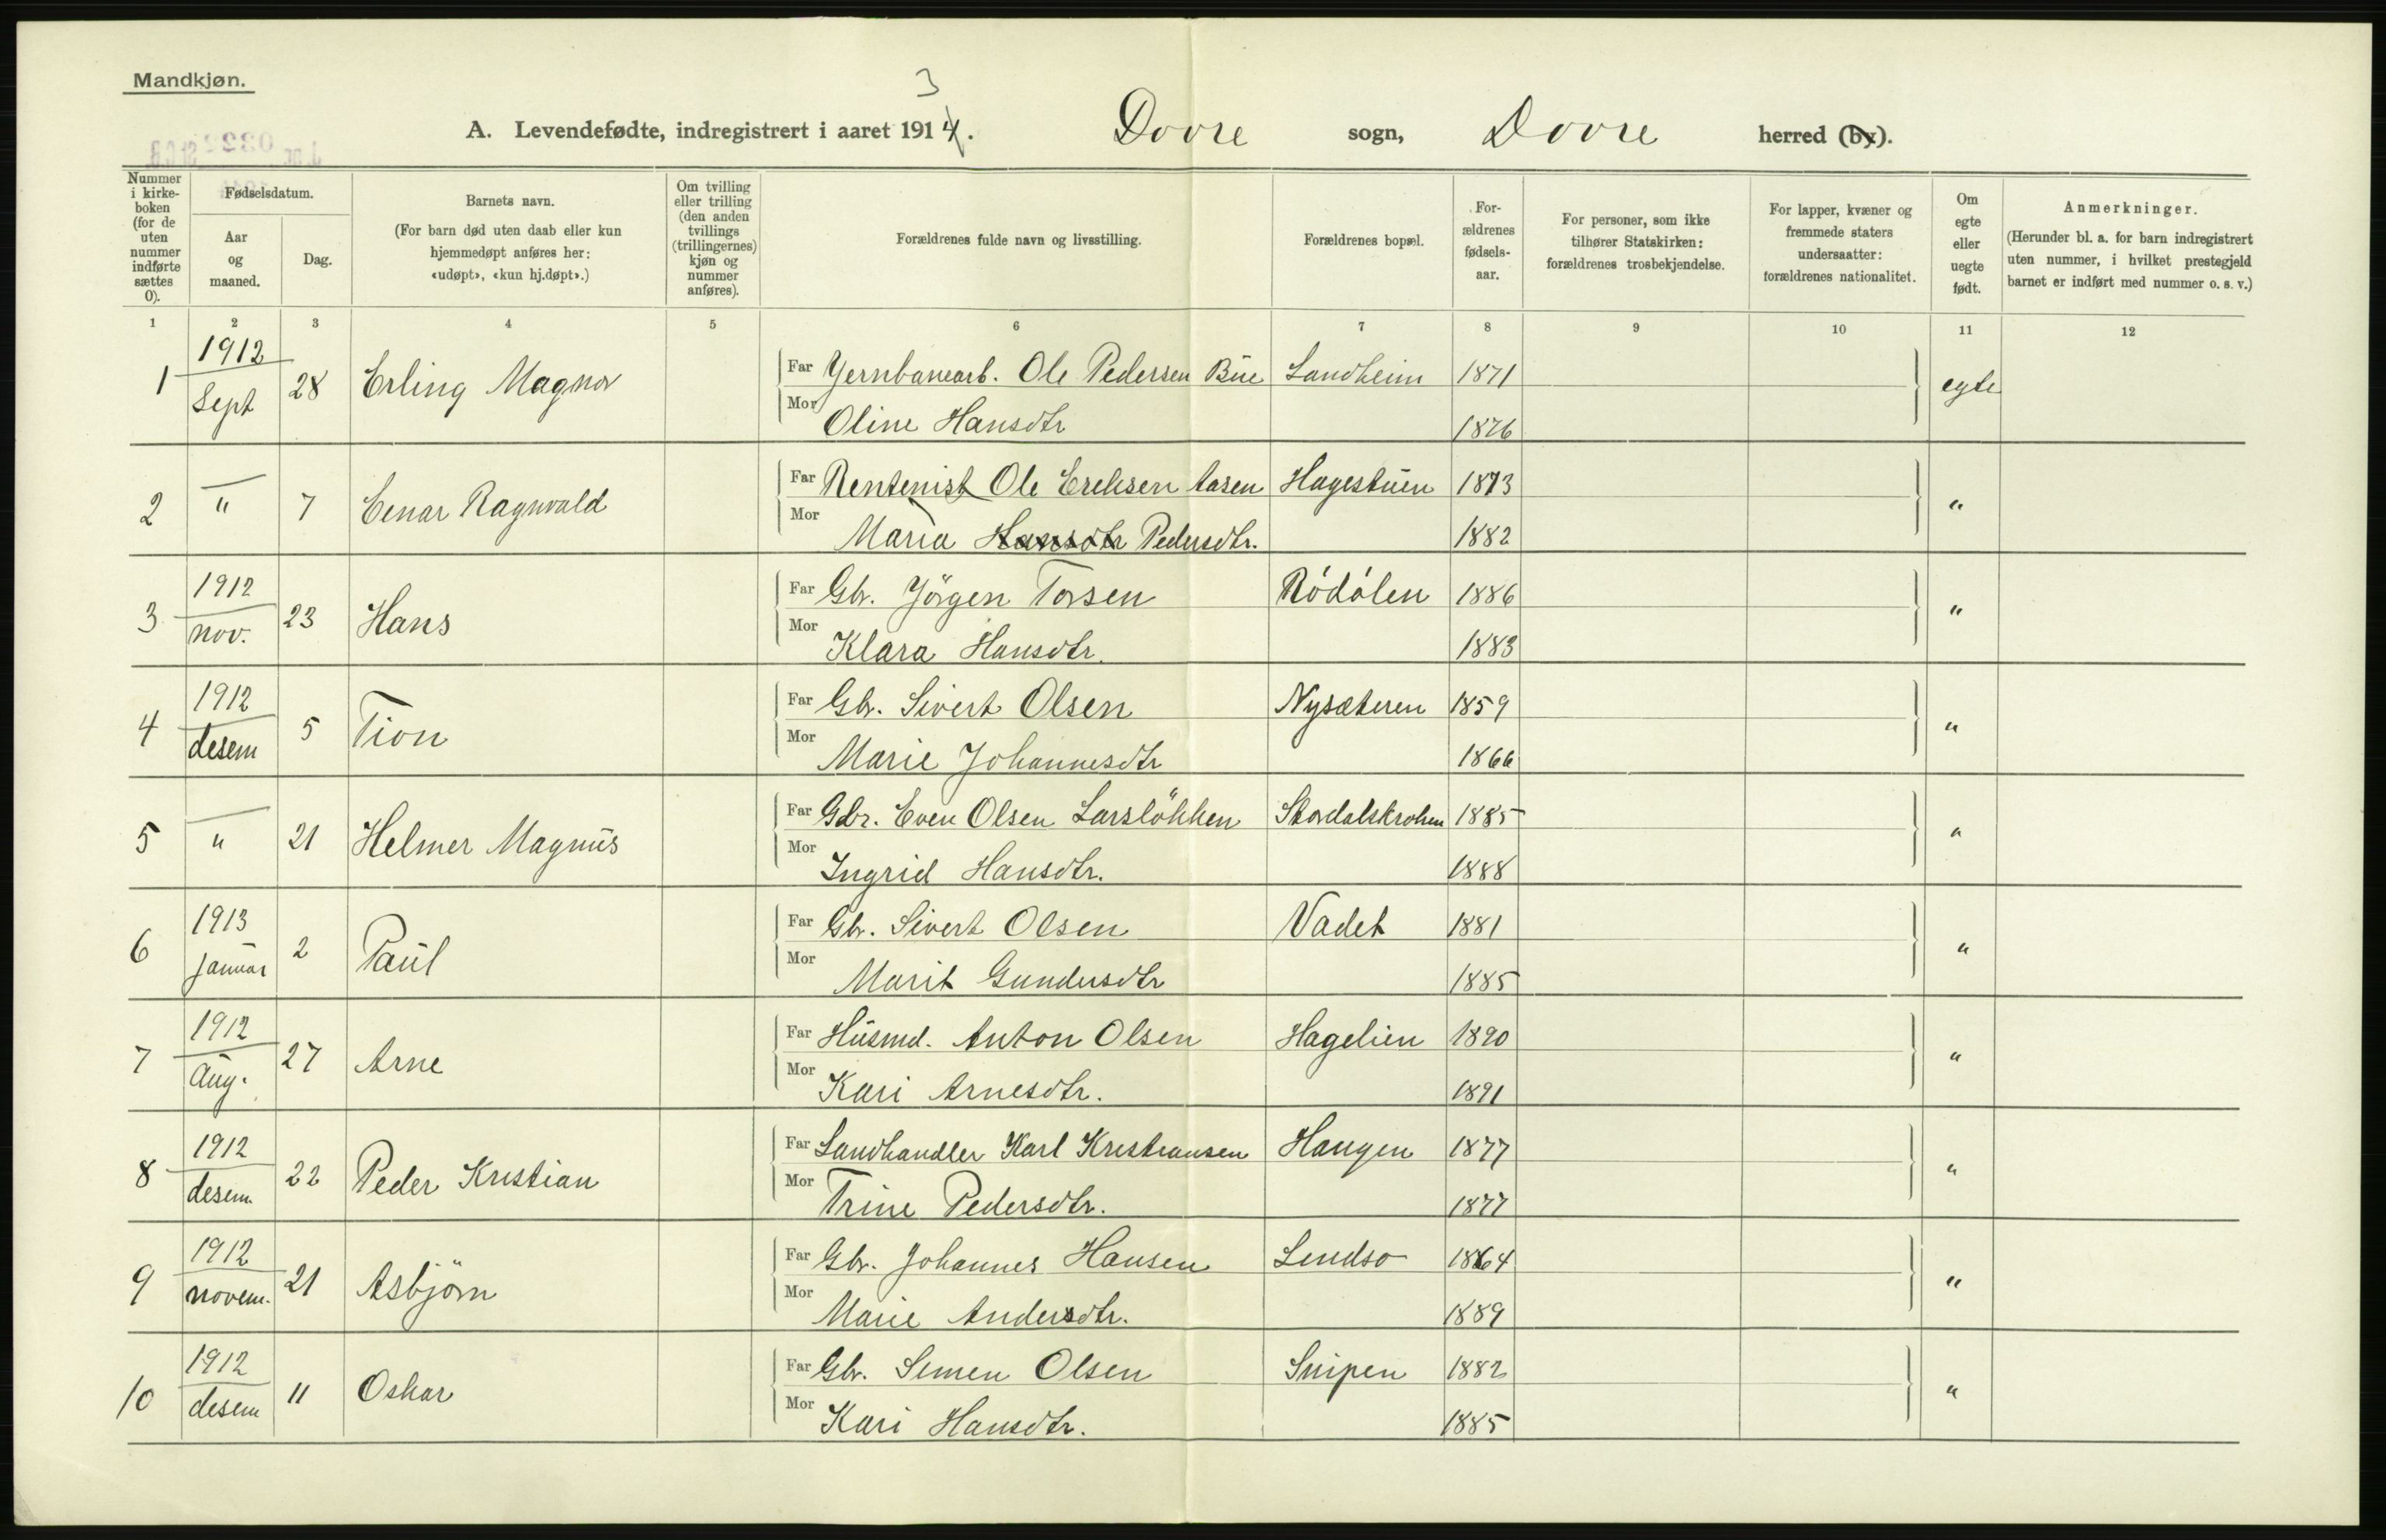 Mandkjøn.
3
A. Levendefødte, indregistrert i aaret 1914. Dovre sogn, Dovre herred (by).
Nummer i kirke-boken (for de uten nummer indførte sættes 0).
Fødselsdatum.
Aar og maaned.
Dag.
Barnets navn.
(For barn død uten daab eller kun hjemmedøpt anføres her: «udøpt», «kun hj.døpt».)
Om tvilling eller trilling (den anden tvillings (trillingernes) kjøn og nummer anføres).
Forældrenes fulde navn og livsstilling.
Forældrenes bopæl.
For-ældrenes fødsels-aar.
For personer, som ikke tilhører Statskirken: forældrenes trosbekjendelse.
For lapper, kvæner og fremmede staters undersaatter: forældrenes nationalitet.
Om egte eller uegte født.
Anmerkninger.
(Herunder bl. a. for barn indregistrert uten nummer, i hvilket prestegjeld barnet er indført med nummer o. s. v.)
1 2 3 4 5 6 7 8 9 10 11 12
1 1912 Sept 28 Erling Magnor Far Jernbanearb. Ole Pedersen Bue Landheim 1871 egte
Mor Oline Hansdtr 1876
2 " 7 Einar Ragnvald Far Rentenist Ole Ereksen Aasen Hagestuen 1873 "
Mor Maria Hansdtr Pedersdtr. 1882
3 1912 nov. 23 Hans Far Gbr. Jörgen Torsen Rödölen 1886 "
Mor Klara Hansdtr. 1883
4 1912 desem 5 Tion Far Gbr. Sivert Olsen Nysæteren 1859 "
Mor Marie Johannesdtr 1866
5 " 21 Helmer Magnus Far Gbr. Even Olsen Larslökken 1885 "
Mor Ingrid Hansdtr. 1888
6 1913 januar 2 Paul Far Gbr. Sivert Olsen Vadet 1881 "
Mor Marit Gundersdtr 1885
7 1912 Aug. 27 Arne Far Husmd. Anton Olsen Hagelien 1890 "
Mor Kari Arnesdtr. 1891
8 1912 desem. 22 Peder Kristian Far Landhandler Karl Kristiansen Haugen 1877 "
Mor Trine Pedersdtr. 1877
9 1912 novem. 21 Asbjörn Far Gbr. Johannes Hansen Lindso 1864 "
Mor Marie Andersdtr. 1889
10 1912 desem 11 Oskar Far Gbr. Simen Olsen Snipen 1882 "
Mor Kari Hansdtr. 1885